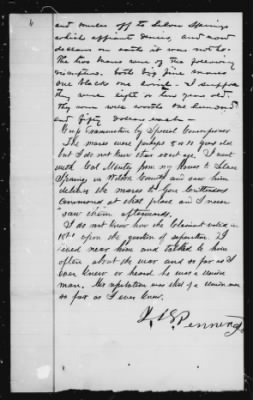 6
and mules off to Silver Springs
which affiant denies, and now
declares on oath it was not so.
The two mares were of the following
description. both big fine mares
one black one I suppose
they were eight or ten years old
they were worth one hundred
and fifty dollars each
Cross Examination by Special Commissioner
The mares were perhaps 8 or 10 years old
but I do not know their exact age. I went
with Col from my house to Silver
Springs in Wilson County and saw him
deliver the mares to Gen Crittendens
command at that place and I never
saw them afterwards.
I do not know how the Claimant voted in
1861 upon the question of separation. I
lived near him and talked to him
often about the war and so far as I
ever knew or heard he was a Union
man. His reputation was that of a Union man
so far as I ever knew.